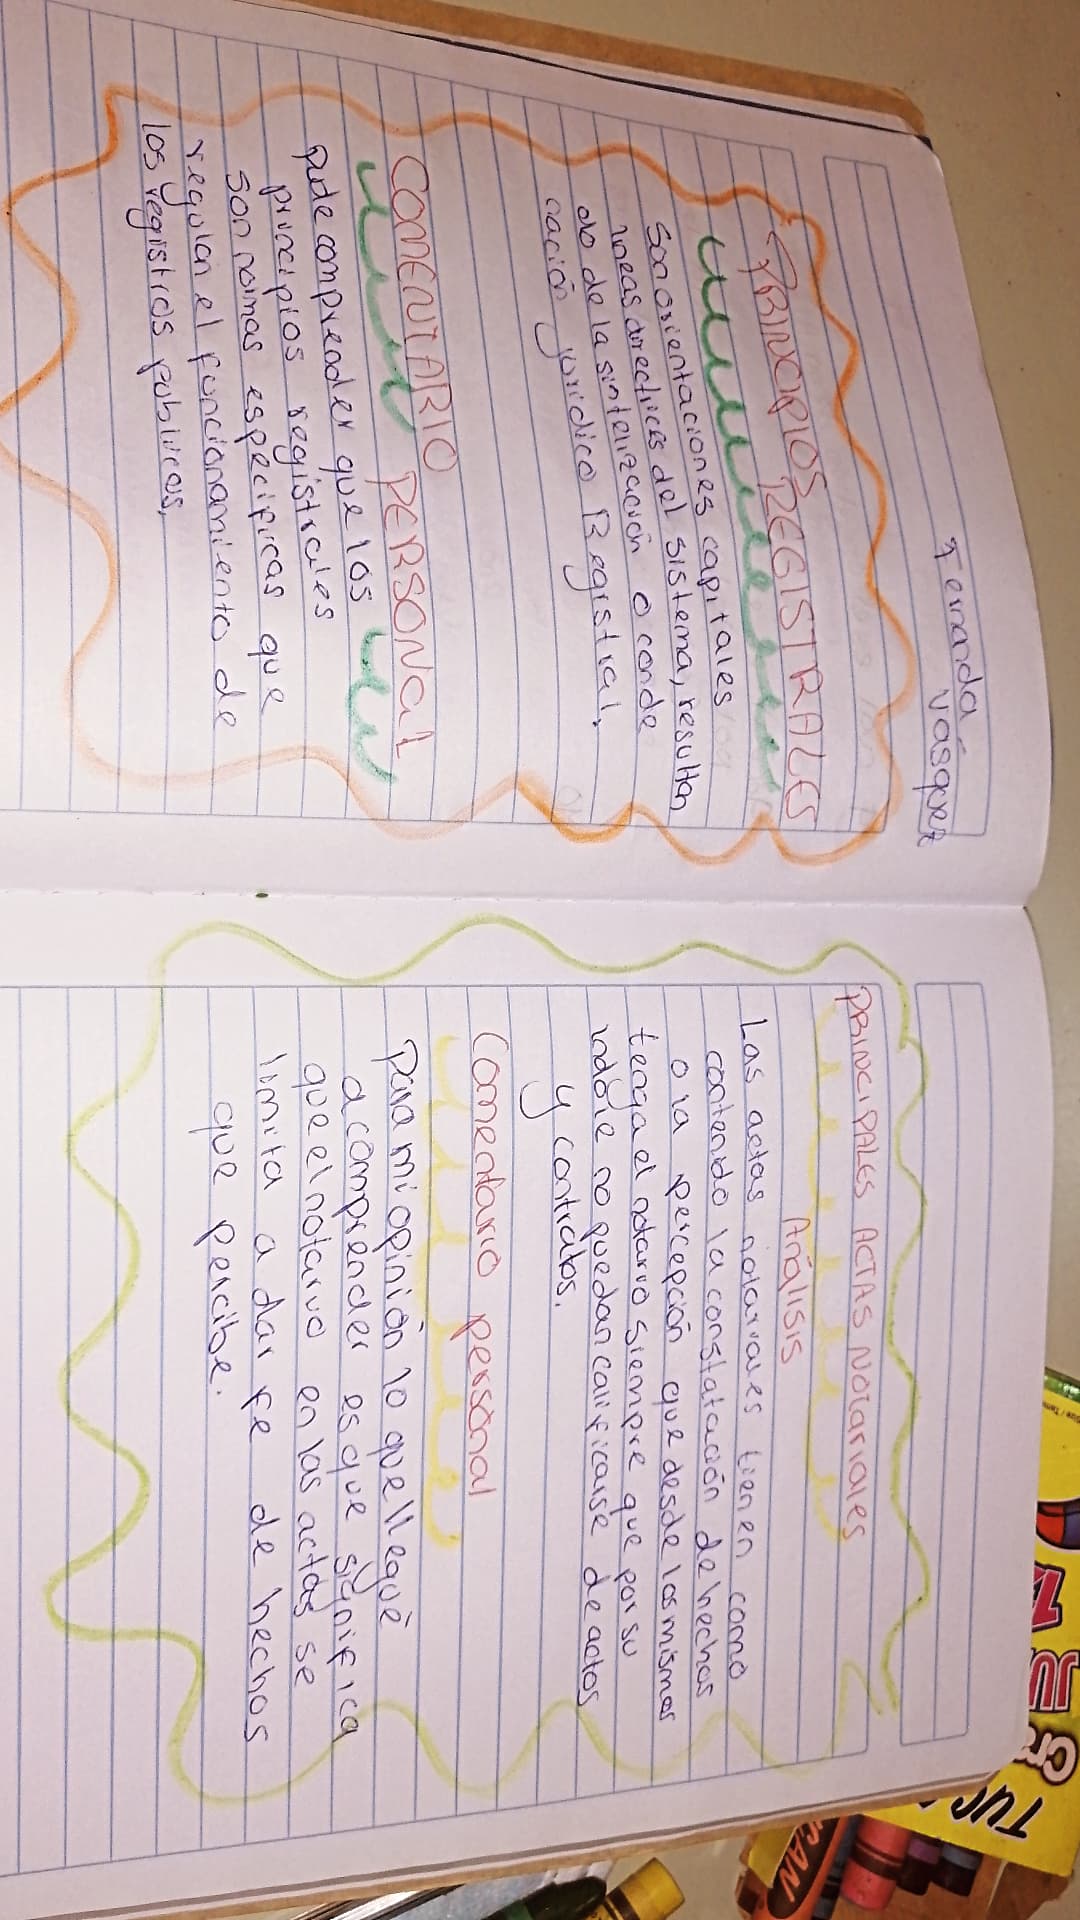 Fernanda
Vasquez
PRINCIPIOS REGISTRALES
Son orientaciones capitales
lineas directrices del sistema, resultan
do de la sintetización o conde
nación juridico Registral.
COMENTARIO PERSONAL
Pude comprender que los
principios registrales
son normas especificas que
regulan el funcionamiento de
los registros publicos.
PRINCIPALES ACTAS NOTARIALES
Análisis
Las actas notariales tienen como
contenido la constatación de hechos
o la percepción que desde los mismos
tenga el notario siempre que por su
indole no puedan calificarse de actos
y contratos.
Comentario personal
Para mi opinión lo que llegué
a comprender es que significa
que el notario en las actas se
limita a dar fe de hechos
que percibe.
JU
Cra
TUC
CAN